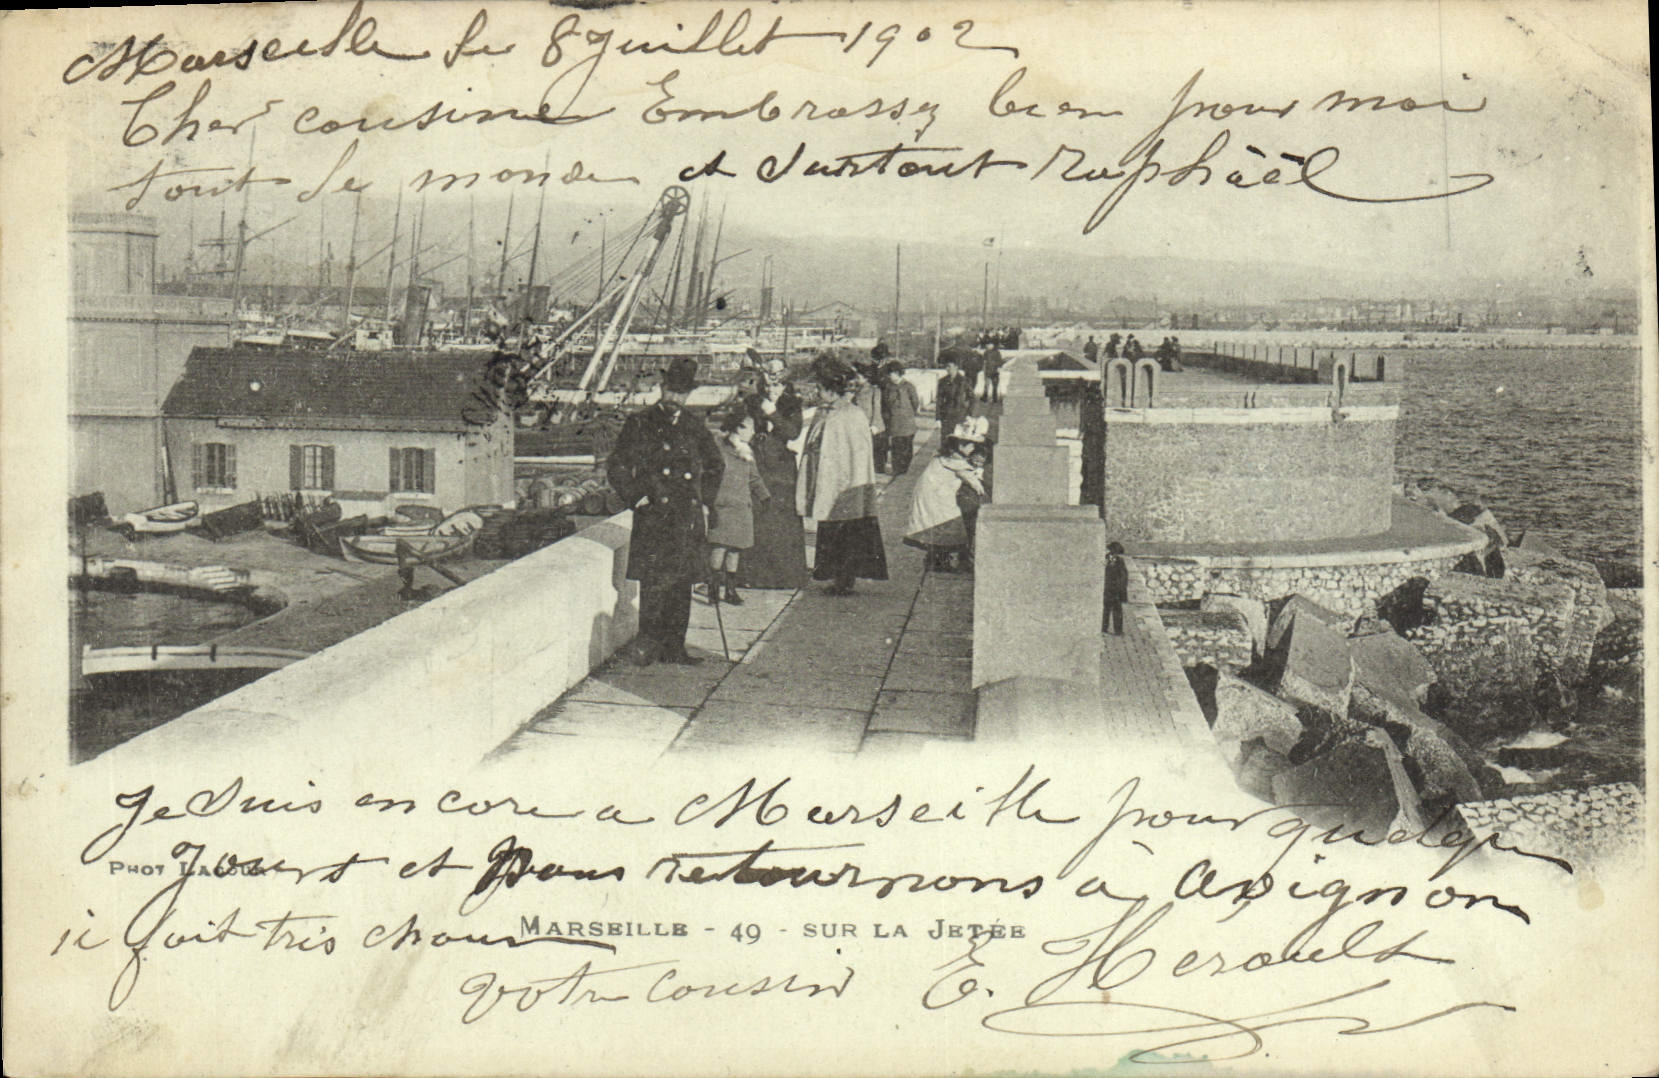 Marseille le 8 Juillet 1902
Cher cousine Embrassez bien pour moi
tout le monde et surtout Raphàël
Je suis encore a Marseille pour quelque
PHOT LACOUR
jours et nous retournons à Avignon
ii fait tris chaux
MARSEILLE - 49 - SUR LA JETÉE
votre cousin E. Herault